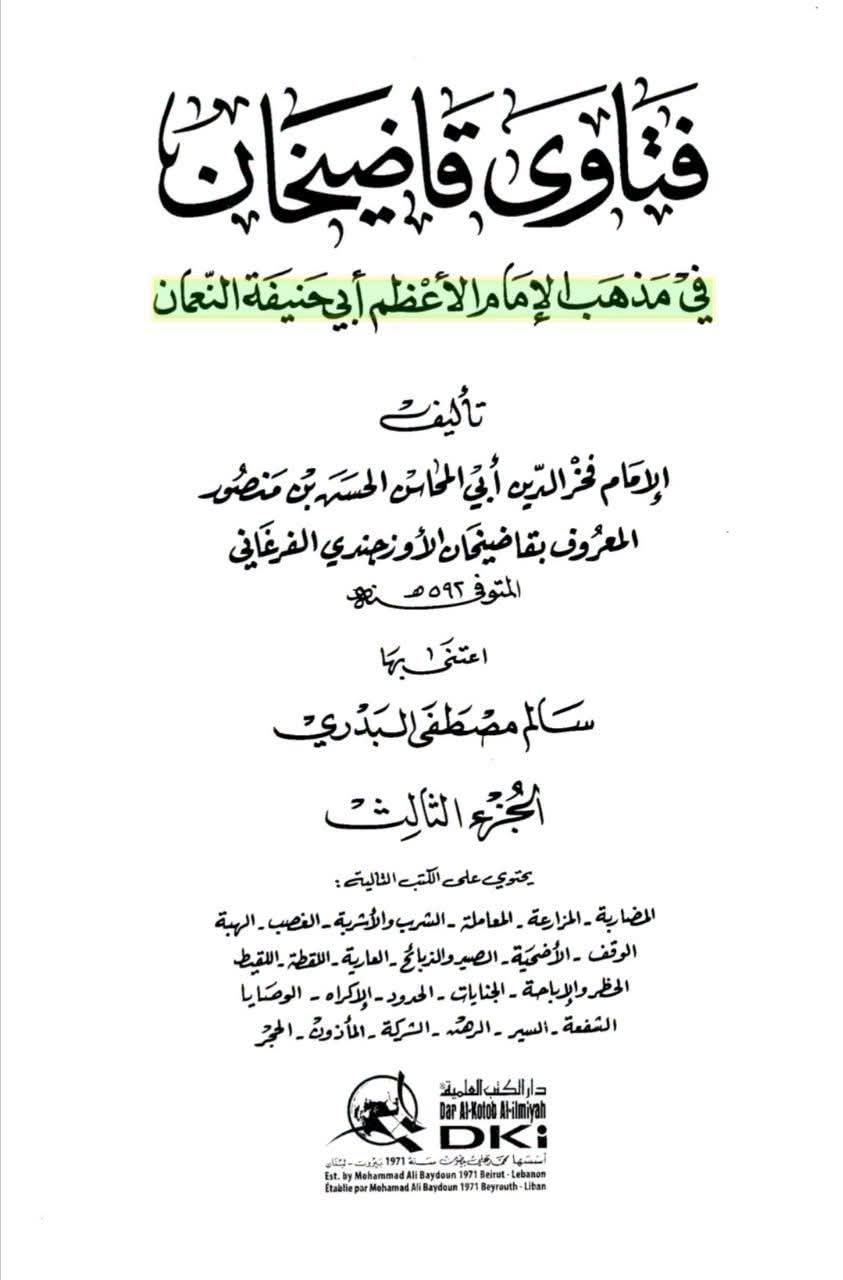 فَتَاوَى قَاضِيخَان
فِي مَذهَب الإِمَام الأَعْظَم أَبِي حَنِيفَة النّعمَان
تأليف
الإِمَام فَخْر الدِّين أَبِي المحَاسِن الحَسَن بْن مَنصُور
المعرُوف بقَاضِيخَان الأوزجَندي الفَرغَاني
المتوفى سنة ٥٩٢ هـ
اعتنى بهَا
سَالم مصْطَفى البَدْري
الجُزء الثالِث
يحتوي على الكتب التالية:
المضاربة - المزارعة - المعاملة - الشرب والأشربة - الغصب - الهبة
الوقف - الأضحية - الصيد والذبائح - العارية - اللقطة - اللقيط
الحظر والإباحة - الجنايات - الحدود - الإكراه - الوصايا
الشفعة - السير - الرهن - الشركة - المأذون - الحجر
دار الكتب العلمية
Dar Al-Kotob Al-ilmiyah
DKi
أسسها محمد علي بيضون سنة 1971 بيروت - لبنان
Est. by Mohammad Ali Baydoun 1971 Beirut - Lebanon
Établie par Mohamad Ali Baydoun 1971 Beyrouth - Liban